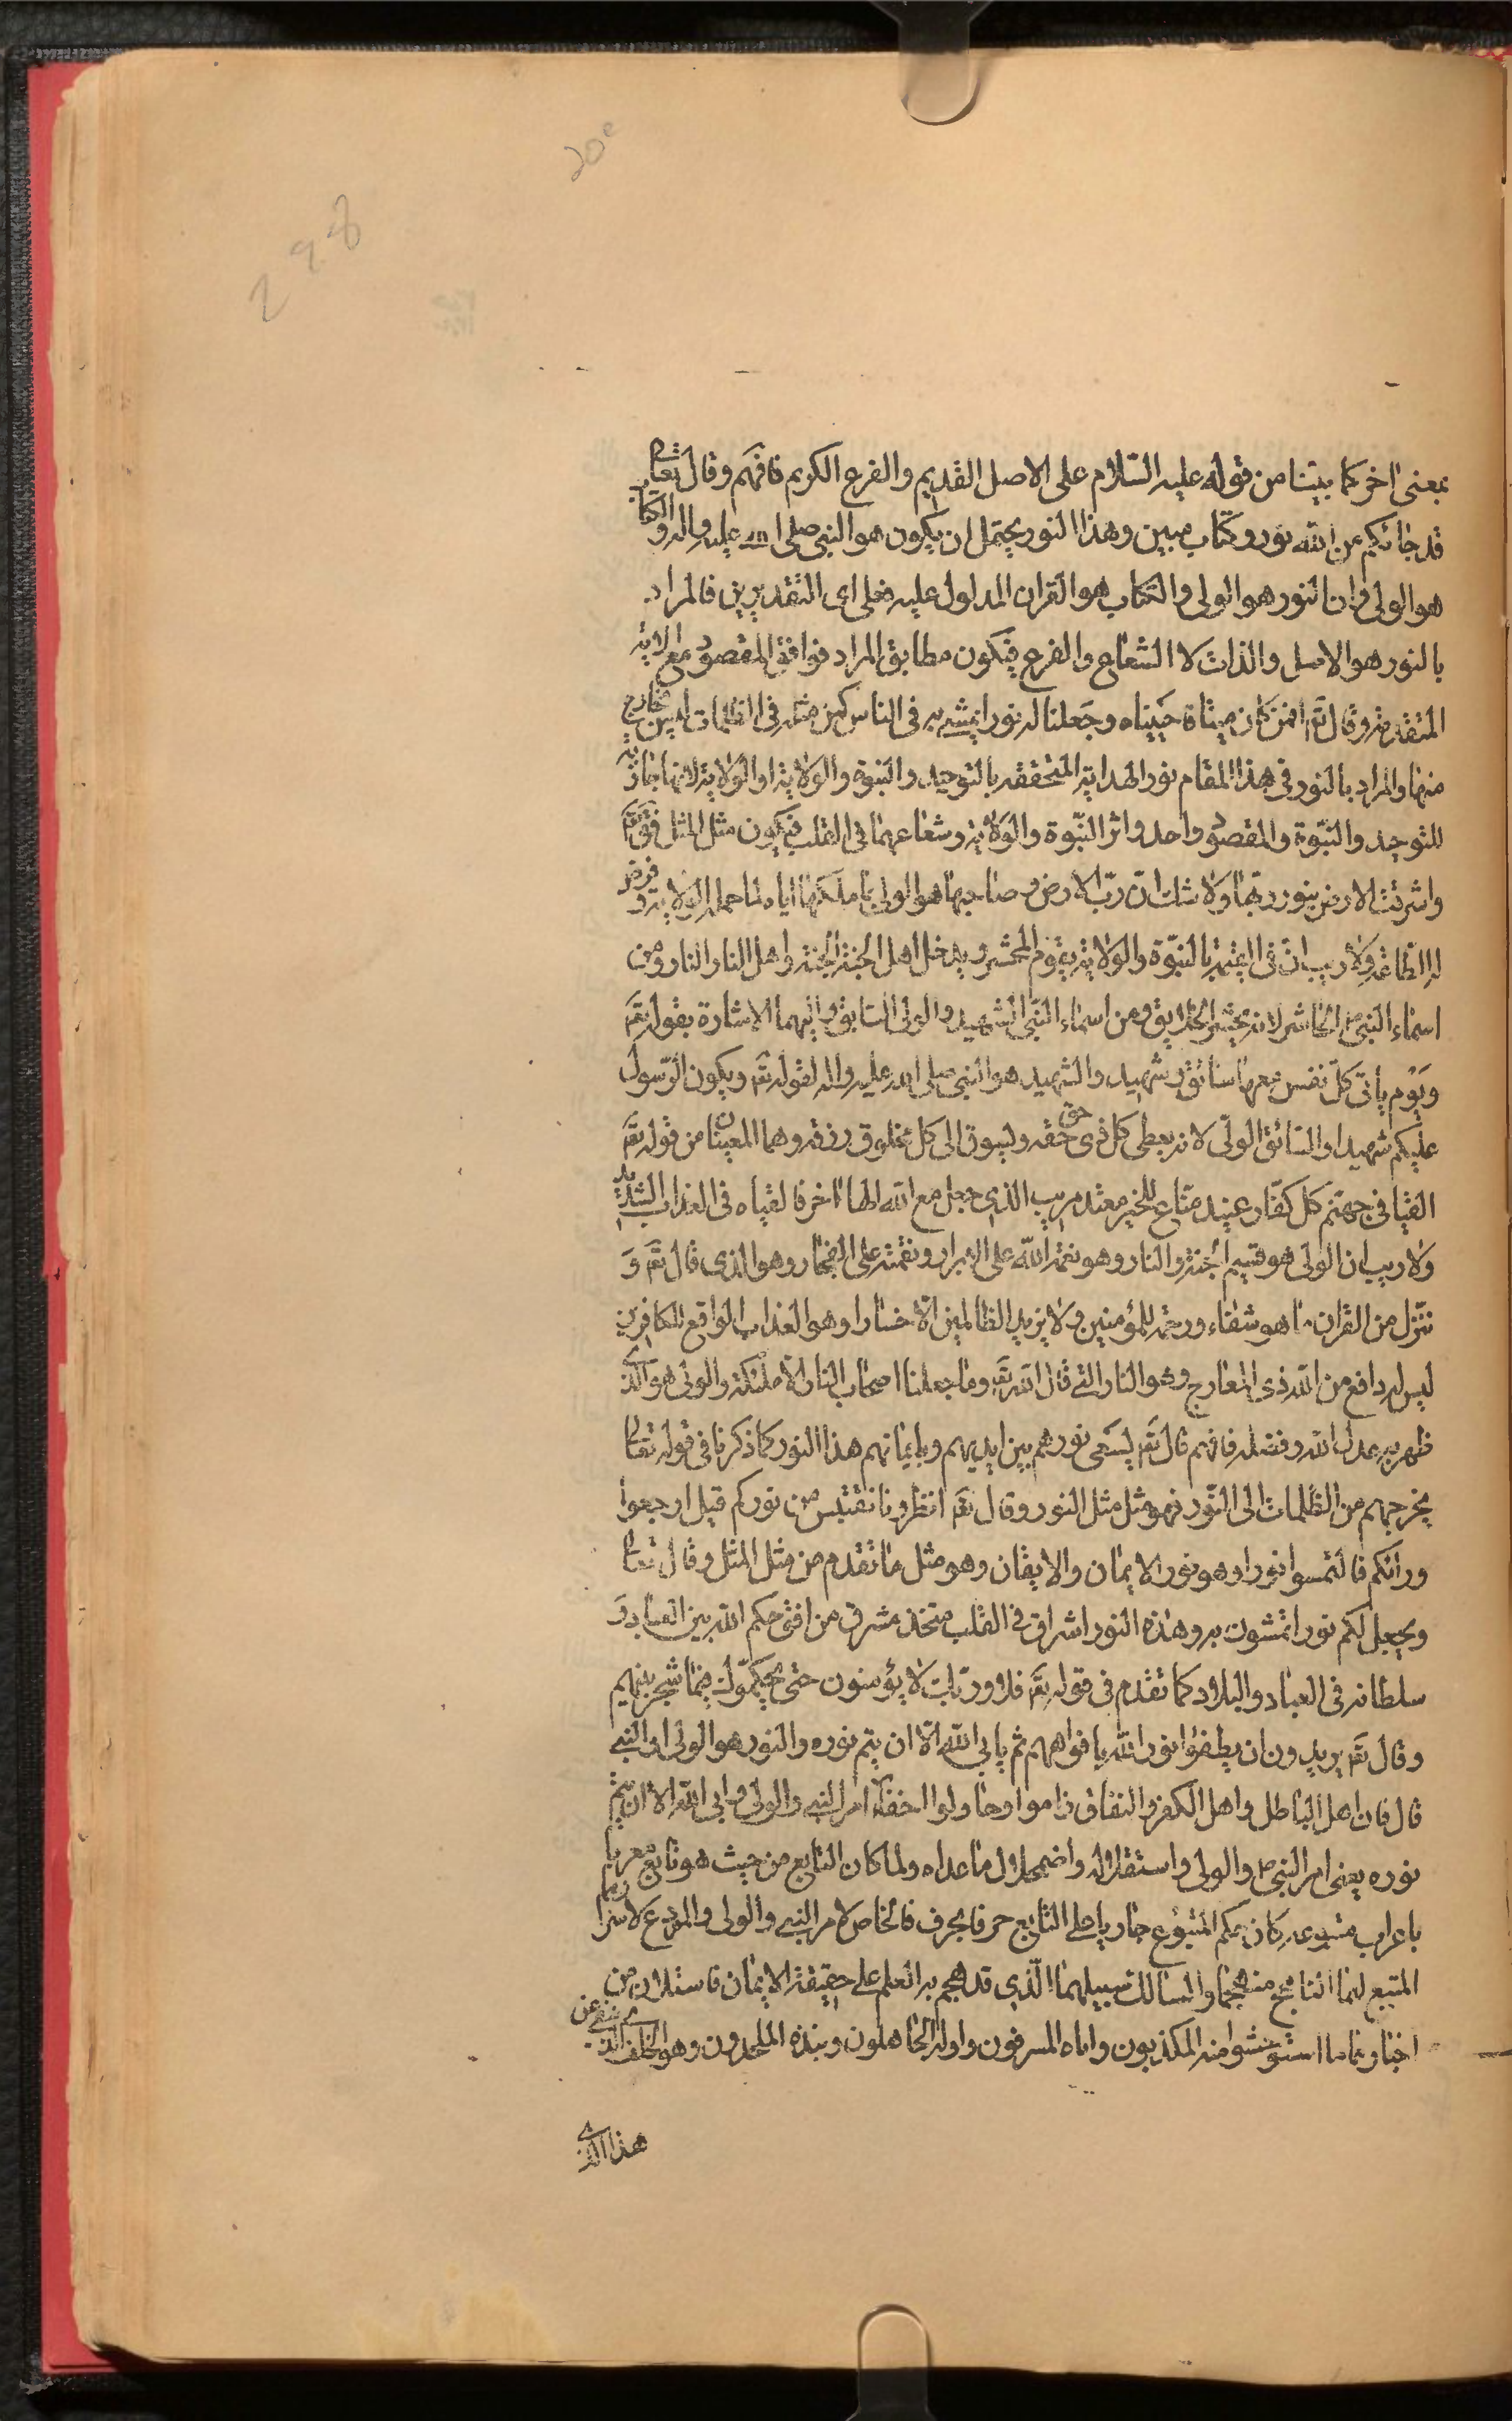 20e
298
بمعنى اخر كما بيّنا من قوله عليه السّلام على الاصل القديم والفرع الكريم فافهم وقال تعالى
قد جائكم من الله نور وكتاب مبين وهذا النور يحتمل ان يكون هو النبي صلى الله عليه واله والكتاب
هو الولى وان النور هو الولى والكتاب هو القران المدلول عليه فعلى اى التقديرين فالمراد
بالنور هو الاصل والذات لا الشعاع والفرع فيكون مطابق المراد فوافق المقصود مع الاية
المتقدمة وقال تع افمن كان ميتا فاحييناه وجعلنا له نورا يمشى به فى الناس كمن مثله فى الظلمات ليس بخارج
منها والمراد بالنور فى هذا المقام نور الهداية المتحققه بالتوحيد والنبوة والولاية او الولاية لانها
للتوحيد والنبّوة والمقصود واحد واثر النبّوة والولاية وشعاعهما فى القلب فيكون مثل المثل
واشرقت الارض بنور ربّها ولا شك ان ربّ الارض وصاحبها هو الولى بما ملكها اياه لما حمله الولاية وفرض
له الطاعة ولا ريب انّ فى القيمة بالنبّوة والولاية يقوم المحشر ويدخل اهل الجنة الجنة واهل النار النار ومن
اسماء النبى ص الحاشر لانه يحشر الخلايق ومن اسماء النبّى الشهيد والولى السايق واليهما الاشارة بقوله تع
ويوم يأتى كلّ نفس معها سائق وشهيد والشهيد هو النبى صلى الله عليه واله لقوله تع ويكون الرّسول
عليكم شهيدا والسّائق الولّى لانه يعطى كل ذى حق حقه ويسوق الى كل مخلوق رزقه وهما المعينان من قوله تع
القيا فى جهنّم كل كفّار عنيد منّاع للخير معتد مريب الذى جعل مع الله الها اخر فالقياه فى العذاب الشديد
ولا ريب ان الولى هو قسيم الجنة والنار وهو نعمة الله على الابرار ونقمته على الفجار وهو الذى قال تع و
ننّزل من القران ما هو شفاء ورحمة للمؤمنين ولا يزيد الظالمين الّا خسارا وهو العذاب الواقع للكافرين
ليس له دافع من الله ذى المعارج وهو النار التى قال الله تع وما جعلنا اصحاب النار الّا ملئكة والولى هو الذى
ظهر به عدل الله وفضله فافهم قال تع يسعى نورهم بين ايديهم وبايمانهم هذا النور كما ذكرنا فى قوله تعالى
يخرجهم من الظلمات الى النّور فهو مثل مثل النور وقال تع انظرونا نقتبس من نوركم قيل ارجعوا
ورائكم فالتمسوا نورا وهو نور الايمان والايقان وهو مثل ما تقدم من مثل المثل وقال تعالى
ويجعل لكم نورا تمشون به وهذه النور اشراق فى القلب متخذ مشرق من افق حكم الله بين العباد و
سلطانه فى العباد والبلاد كما تقدم فى قوله تع فلا وربّك لا يؤمنون حتى يحكمّوك فيما شجر بينهم
وقال تع يريدون ان يطفؤا نور الله بافواههم ثم يابى الله الّا ان يتم نوره والنور هو الولى او النبى
قال فان اهل الباطل واهل الكفر والنفاق راموا وحاولوا اخفاء امر النبى والولى وابى الله الا ان يتم
نوره يعنى امر النبى ص والولى واستقلاله واضمحلال ما عداه ولما كان التابع من حيث هو تابع معربا
باعراب متبوعه كان حكم المتبوع جاريا على التابع حرفا بحرف فالخاص لامر النبى والولى والمودع لاسرارهما
المتبع لهما الناهج منهجهما والسالك سبيلهما الّذى قد هجم به العلم على حقيقة الايمان فاستلان من
اخبارنا ما استوحشوا منه المكذبون واباه المسرفون واوله الجاهلون ونبذه الملحدون وهو الخلف الذى
هذا الذى